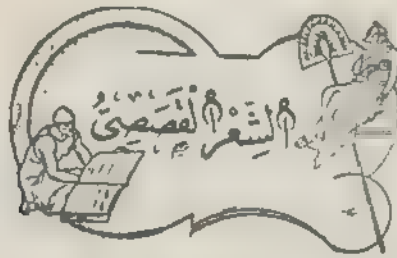 الشِّعْرُ القَصَصِيُّ